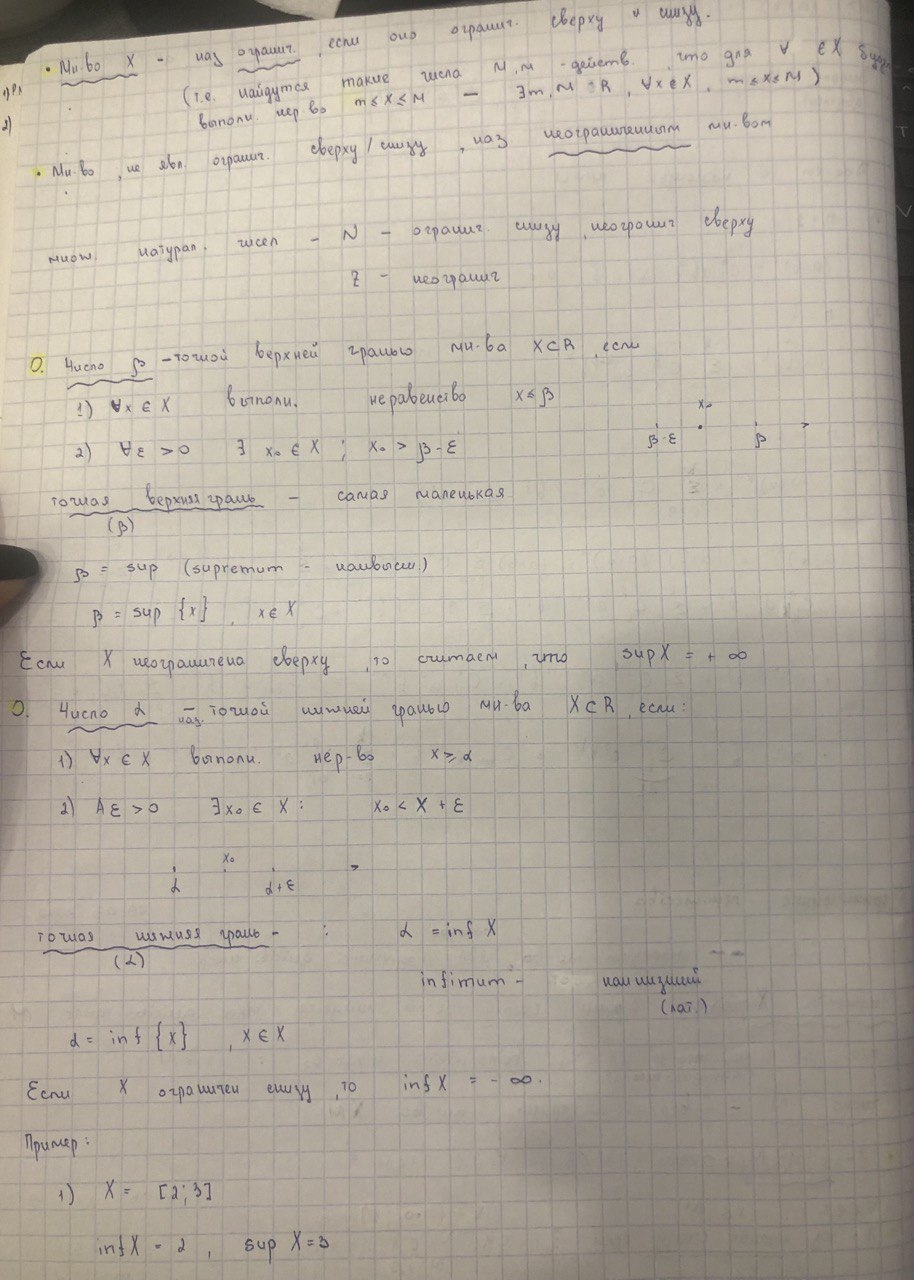 • Мн-во X - наз огранич. , если оно огранич. сверху и снизу.
(т.е. найдутся такие числа M, m - действ. , что для ∀ ∈ X буд
выполн. нер-во m ≤ X ≤ M — ∃ m, M ∈ R , ∀x ∈ X , m ≤ X ≤ M)
2)
• Мн-во , не явл. огранич. сверху/снизу , наз неограниченным мн-вом
множ. натурал. чисел - N - огранич. снизу , неогранич сверху
Z - неогранич
О. Число β - точной верхней гранью мн-ва X⊂R , если
1) ∀x ∈ X выполн. неравенство x ≤ β
2) ∀ε > 0 ∃ x₀ ∈ X ; x₀ > β-ε
x₀
β-ε β
точная верхняя грань - самая маленькая
(β)
β = sup (supremum - наивысш.)
β = sup {x} , x ∈ X
Если X неограничена сверху , то считаем , что sup X = + ∞
О. Число α - наз. точной нижней гранью мн-ва X⊂R , если:
1) ∀x ∈ X выполн. нер-во x ⩾ α
2) Aε > 0 ∃x₀ ∈ X : x₀ < X + ε
x₀
α α+ε
точная нижняя грань - : α = inf X
(α)
infimum - наинизший
(лат.)
α = inf {x} , x ∈ X
Если X ограничен снизу , то inf X = - ∞.
Пример:
1) X = [2; 3]
inf X = 2 , sup X = 3